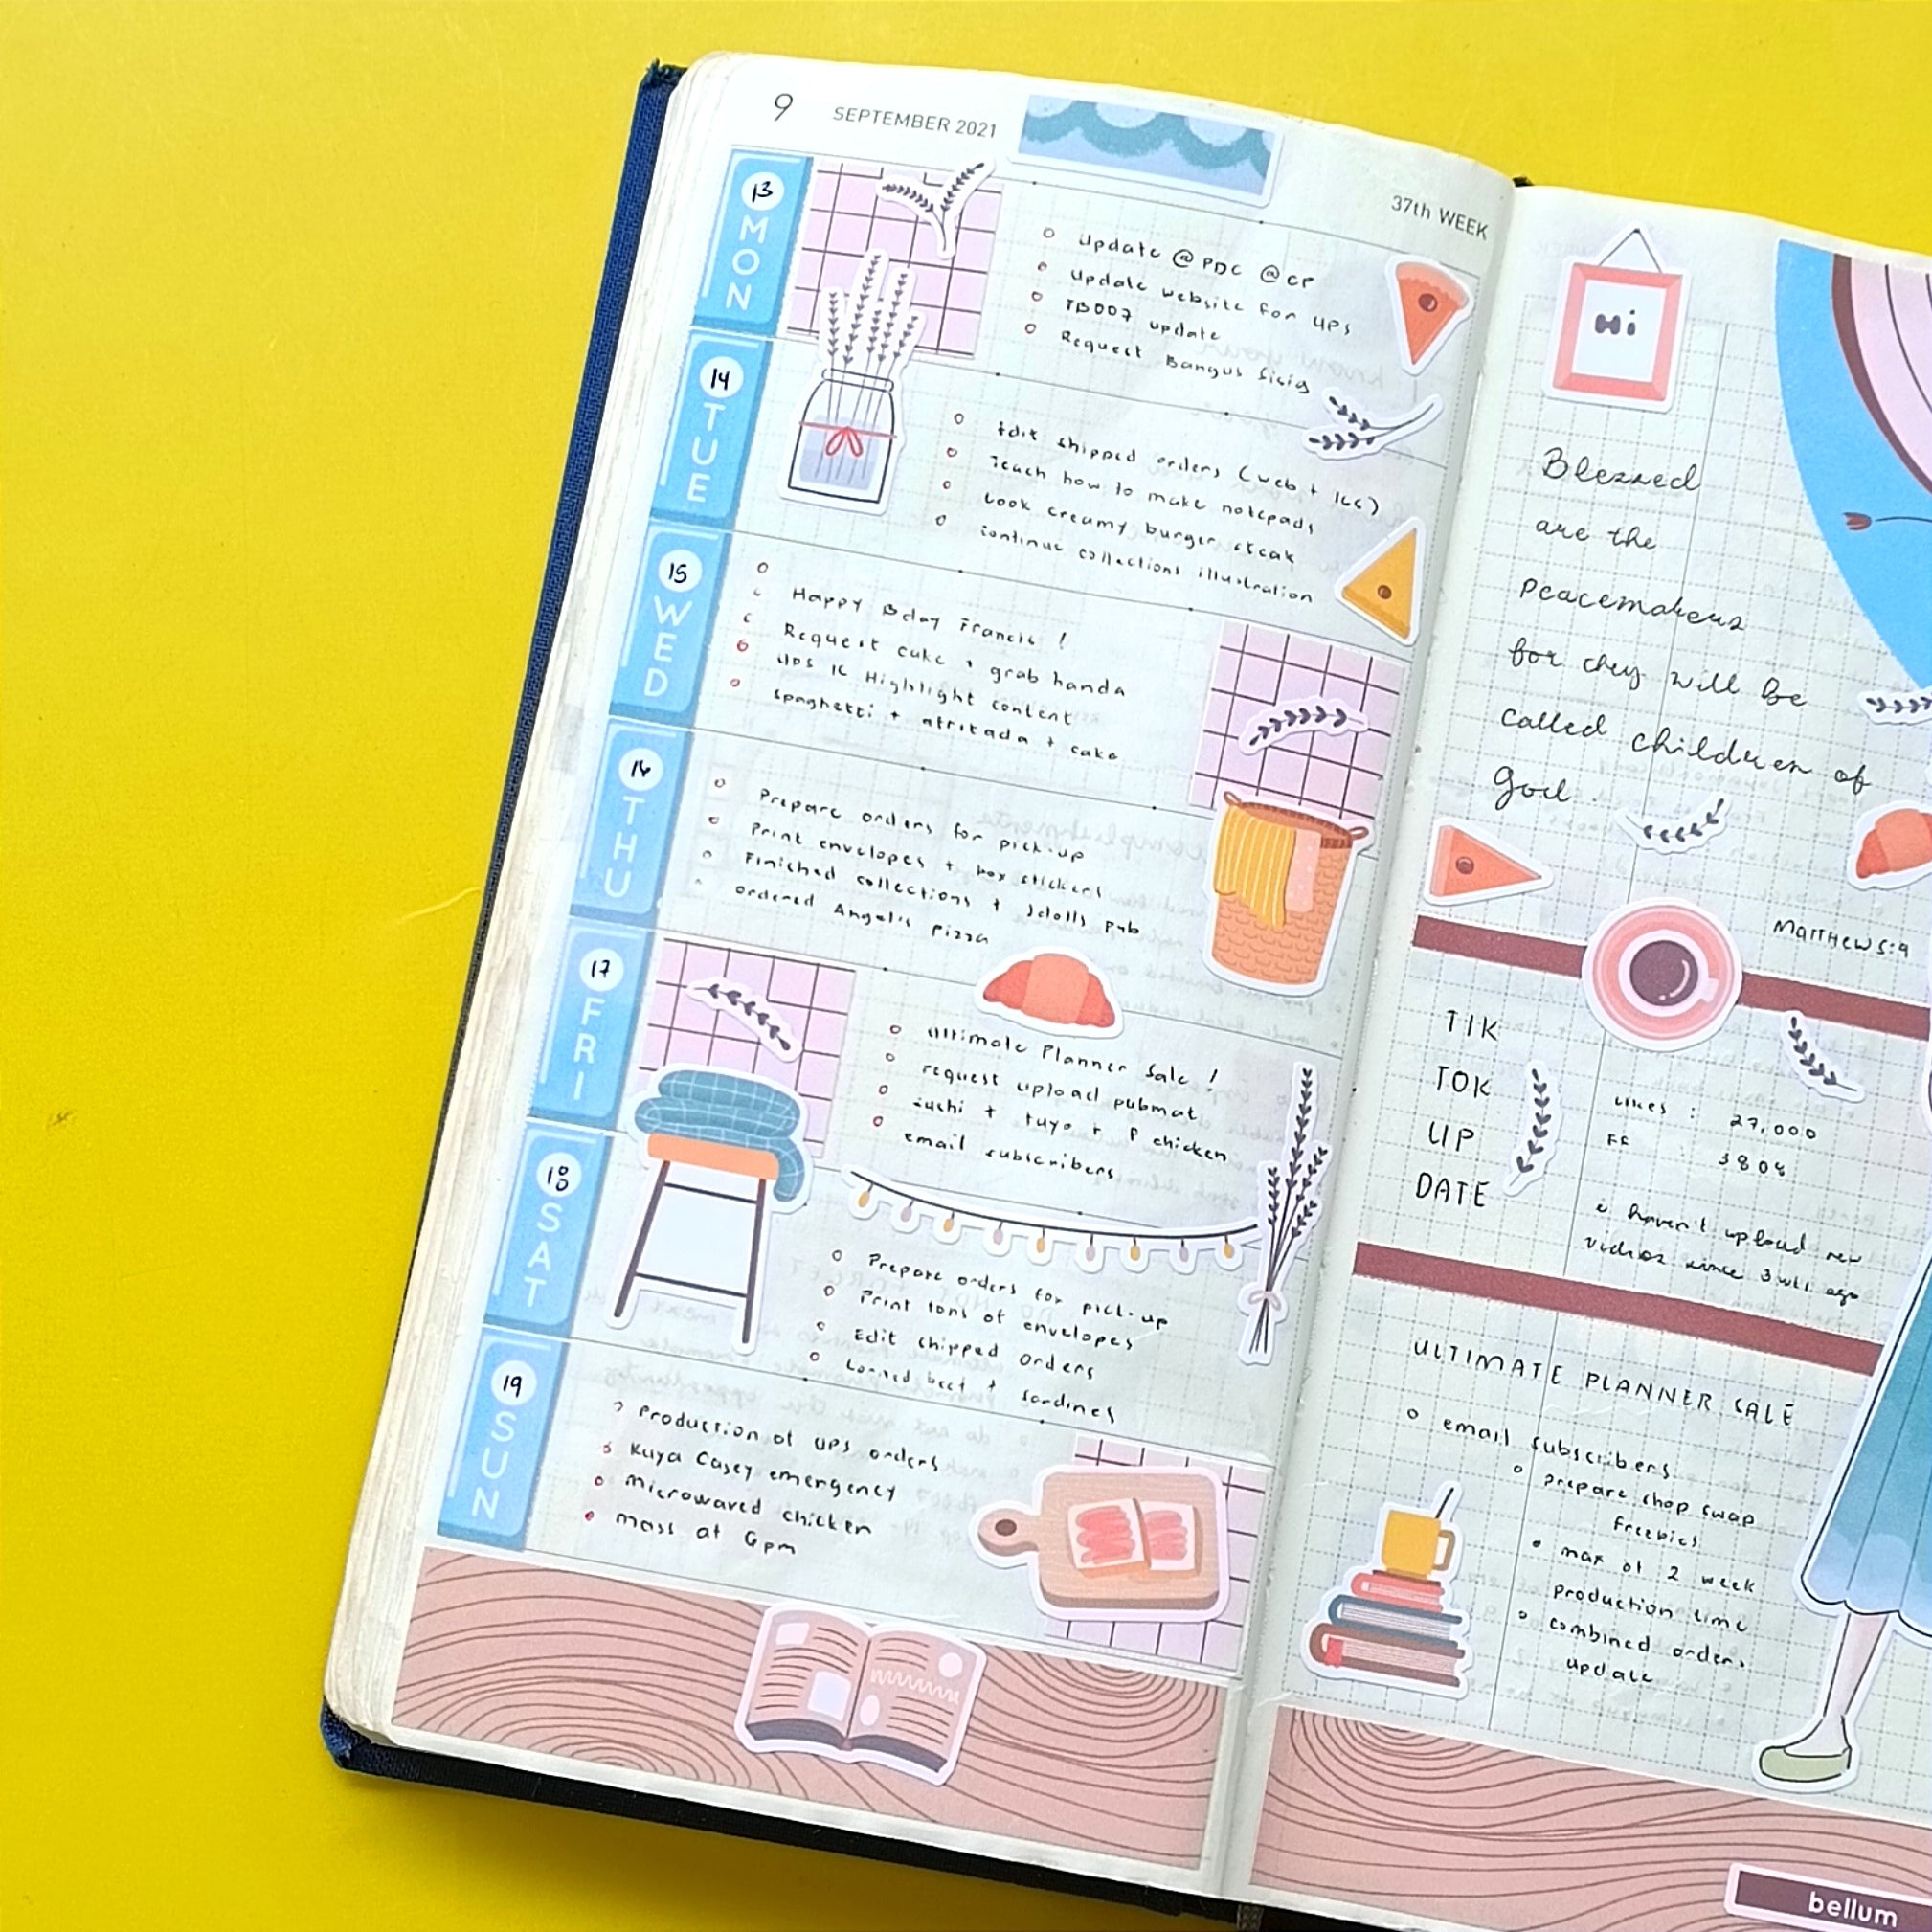 9 SEPTEMBER 2021
37th WEEK
13 MON
update @ PDC @ CP
update website for UPS
TB007 update
Request Bangus Sisig
14 TUE
Edit shipped orders (web +
Teach how to make notepads
Cook creamy burger steak
continue collections illustration
15 WED
Happy Bday Francis !
Request cake + grab handa
UPS IG Highlight content
spaghetti + afritada + cake
16 THU
Prepare orders for pick-up
Print envelopes + box stickers
Finished collections +
ordered Angel's Pizza
17 FRI
Ultimate Planner Sale !
request upload pubmat
+ tuyo + F chicken
email subscribers
18 SAT
Prepare orders for pick-up
Print tons of envelopes
Edit shipped orders
Corned beef + Sardines
19 SUN
Production of UPS orders
Kuya Casey emergency
microwaved chicken
mass at 6pm
Hi
Blessed
are the
peacemakers
for they will be
called children of
God.
MATTHEW 5:9
TIK
TOK
UP
DATE
Likes : 27,000
FF 3808
haven't upload new
videos since 3 wks ago
ULTIMATE PLANNER SALE
email subscribers
prepare shop swap
freebies
max of 2 week
production time
combined orders
update
bellum